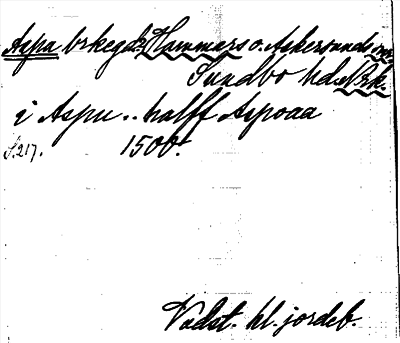 Aspa brkeg Hammars o. Askersunds snr.
Sundbo hd. Nrk.
i Aspu .. halff Aspoaa
S. 217. 1500.
Vadst. kl. jordeb.